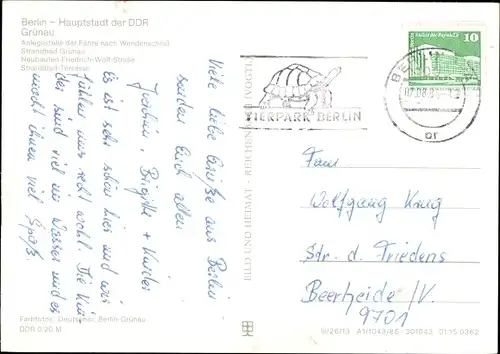 Berlin – Hauptstadt der DDR
Grünau
Anlegestelle der Fähre nach Wendenschloß
Strandbad Grünau
Neubauten Friedrich-Wolf-Straße
Strandbad-Terrasse
Viele liebe Grüße aus Berlin
senden Euch allen
Joachim, Brigitte + Kinder
Es ist sehr schön hier und wir
fühlen uns recht wohl. Die Kin
der sind viel im Wasser und es
macht ihnen viel Spaß.
BILD UND HEIMAT · REICHENBACH
TIERPARK BERLIN
BERLIN
07.08.8
or
10
Fam.
Wolfgang Krug
Str. d. Friedens
Beerheide/V.
9701
Farbfotos: Deutscher, Berlin-Grünau
DDR 0,20 M
A1/1043/85 301043 01 15 0362